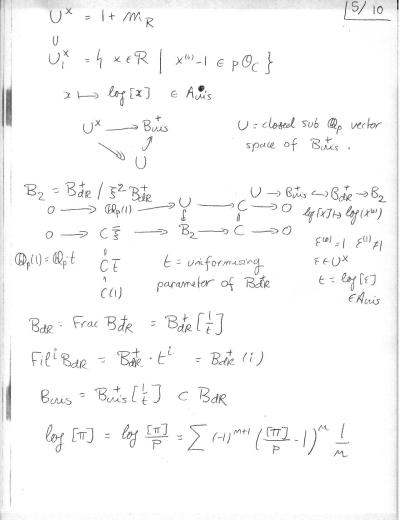 5/10
U^x = 1 + m_R
∪
U_1^x = { x ∈ R | x^(0) - 1 ∈ p O_C }
x ↦ log [x] ∈ A_cris
U^x → B_cris^+
U = closed sub Q_p vector
U
space of B_cris^+.
B_2 = B_dR^+ / ξ^2 B_dR^+
U → B_cris^+ ↪ B_dR^+ → B_2
0 → Q_p(1) → U → C → 0
log [x] ↦ log (x^(0))
0 → C ξ̄ → B_2 → C → 0
ε^(0) = 1 ε^(1) ≠ 1
Q_p(1) = Q_p · t
C t̄
t = uniformising
ε ∈ U^x
C(1)
parameter of B_dR^+
t = log [ε]
∈ A_cris
B_dR = Frac B_dR^+ = B_dR^+ [1/t]
Fil^i B_dR = B_dR^+ · t^i = B_dR^+ (i)
B_cris = B_cris^+ [1/t] ⊂ B_dR
log [π] = log [π]/p = Σ (-1)^{n+1} ([π]/p - 1)^n 1/n